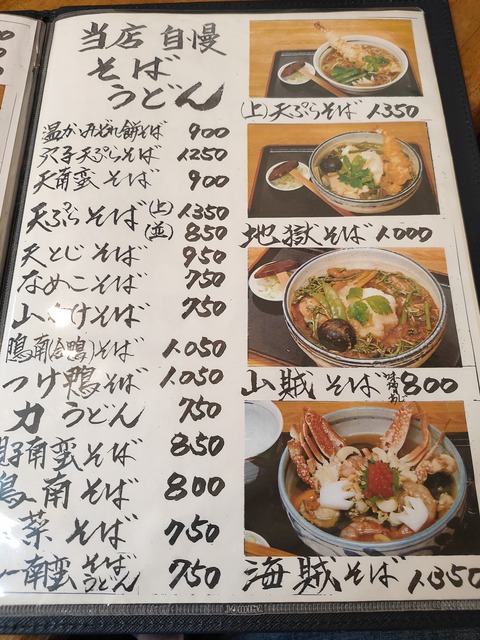 当店 自慢
そば
うどん
温かみぞれ餅そば 900
穴子天ぷらそば 1250
天南蛮 そば 900
天ぷらそば (上) 1350
(並) 850
天とじ そば 950
なめこ そば 750
山かけそば 750
鴨南(合鴨)そば 1,050
つけ鴨そば 1,050
力 うどん 750
南蛮 そば 850
南 そば 800
菜 そば 750
南蛮 そば うどん 750
(上)天ぷらそば 1350
地獄そば 1000
山賊 そば 800
海賊そば 1350